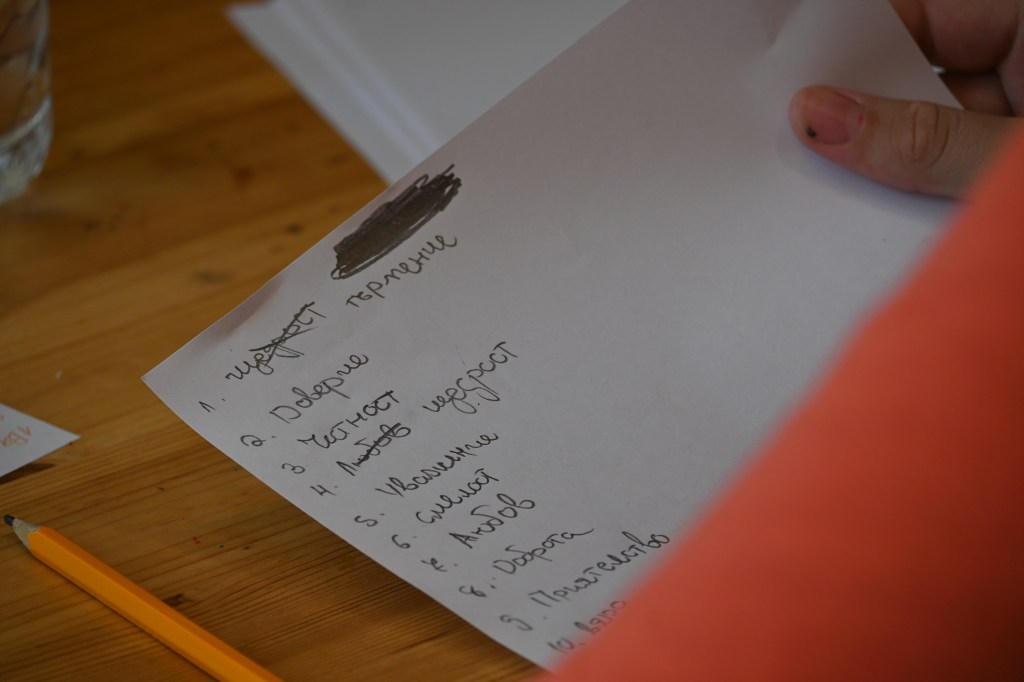 1. щедрост търпение
2. Доверие
3. Честност
4. Любов щедрост
5. Уважение
6. смелост
7. Любов
8. Доброта
9. Приятелство
10. вяра